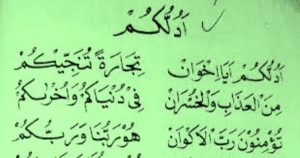 اَدُلُّكُمْ
اَدُلُّكُمْ اَيَا اِخْوَانْ تِجَارَةً تُنَجِّيْكُمْ
مِنَ الْعَذَابِ وَالْخُسْرَانْ فِى دُنْيَاكُمْ وَاُخْرٰىكُمْ
تُؤْمِنُوْنَ رَبَّ الْاَكْوَانْ هُوَ رَبُّنَا وَرَبُّكُمْ